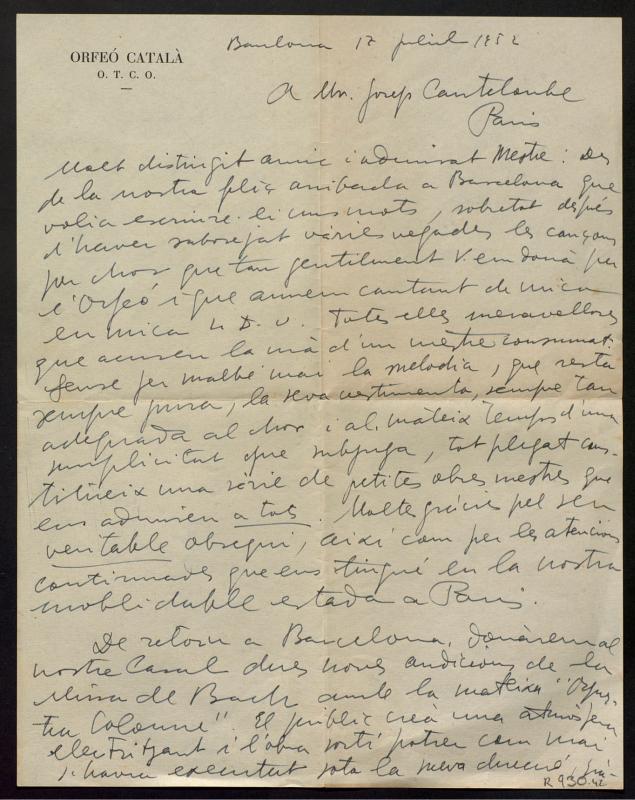 ORFEÓ CATALÀ
O. T. C. O.
Barcelona 17 juliol 1952
A Mr. Josep Canteloube
Paris
Molt distingit amic i admirat Mestre: Des
de la nostra feliç arribada a Barcelona que
volia escriure-li uns mots, sobretot després
d'haver saborejat vàries vegades les cançons
per chor que tan gentilment V. em donà per
l'Orfeó i que anirem cantant de mica
en mica D. V. Totes elles meravelloses
que acusen la mà d'un mestre consumat.
Sense fer malbé mai la melodia, que resta
sempre pura, la seva vestimenta, sempre tan
adequada al chor i al mateix temps d'una
simplicitat que subjuga, tot plegat cons-
titueix una sèrie de petites obres mestres que
ens admiren a tots. Moltes gràcies pel seu
veritable obsequi, així com per les atencions
continuades que ens tingué en la nostra
inoblidable estada a Paris.
De retorn a Barcelona, donàrem al
nostre Casal dues noves audicions de la
Missa de Bach amb la mateixa "Orques-
tra Colonne". El públic creà una atmòsfera
electritzant i l'obra sortí potser com mai
s'havia executat sota la meva direcció, grà-
R 930.42